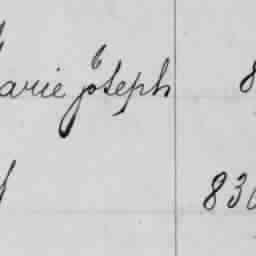 arie joseph 8
830